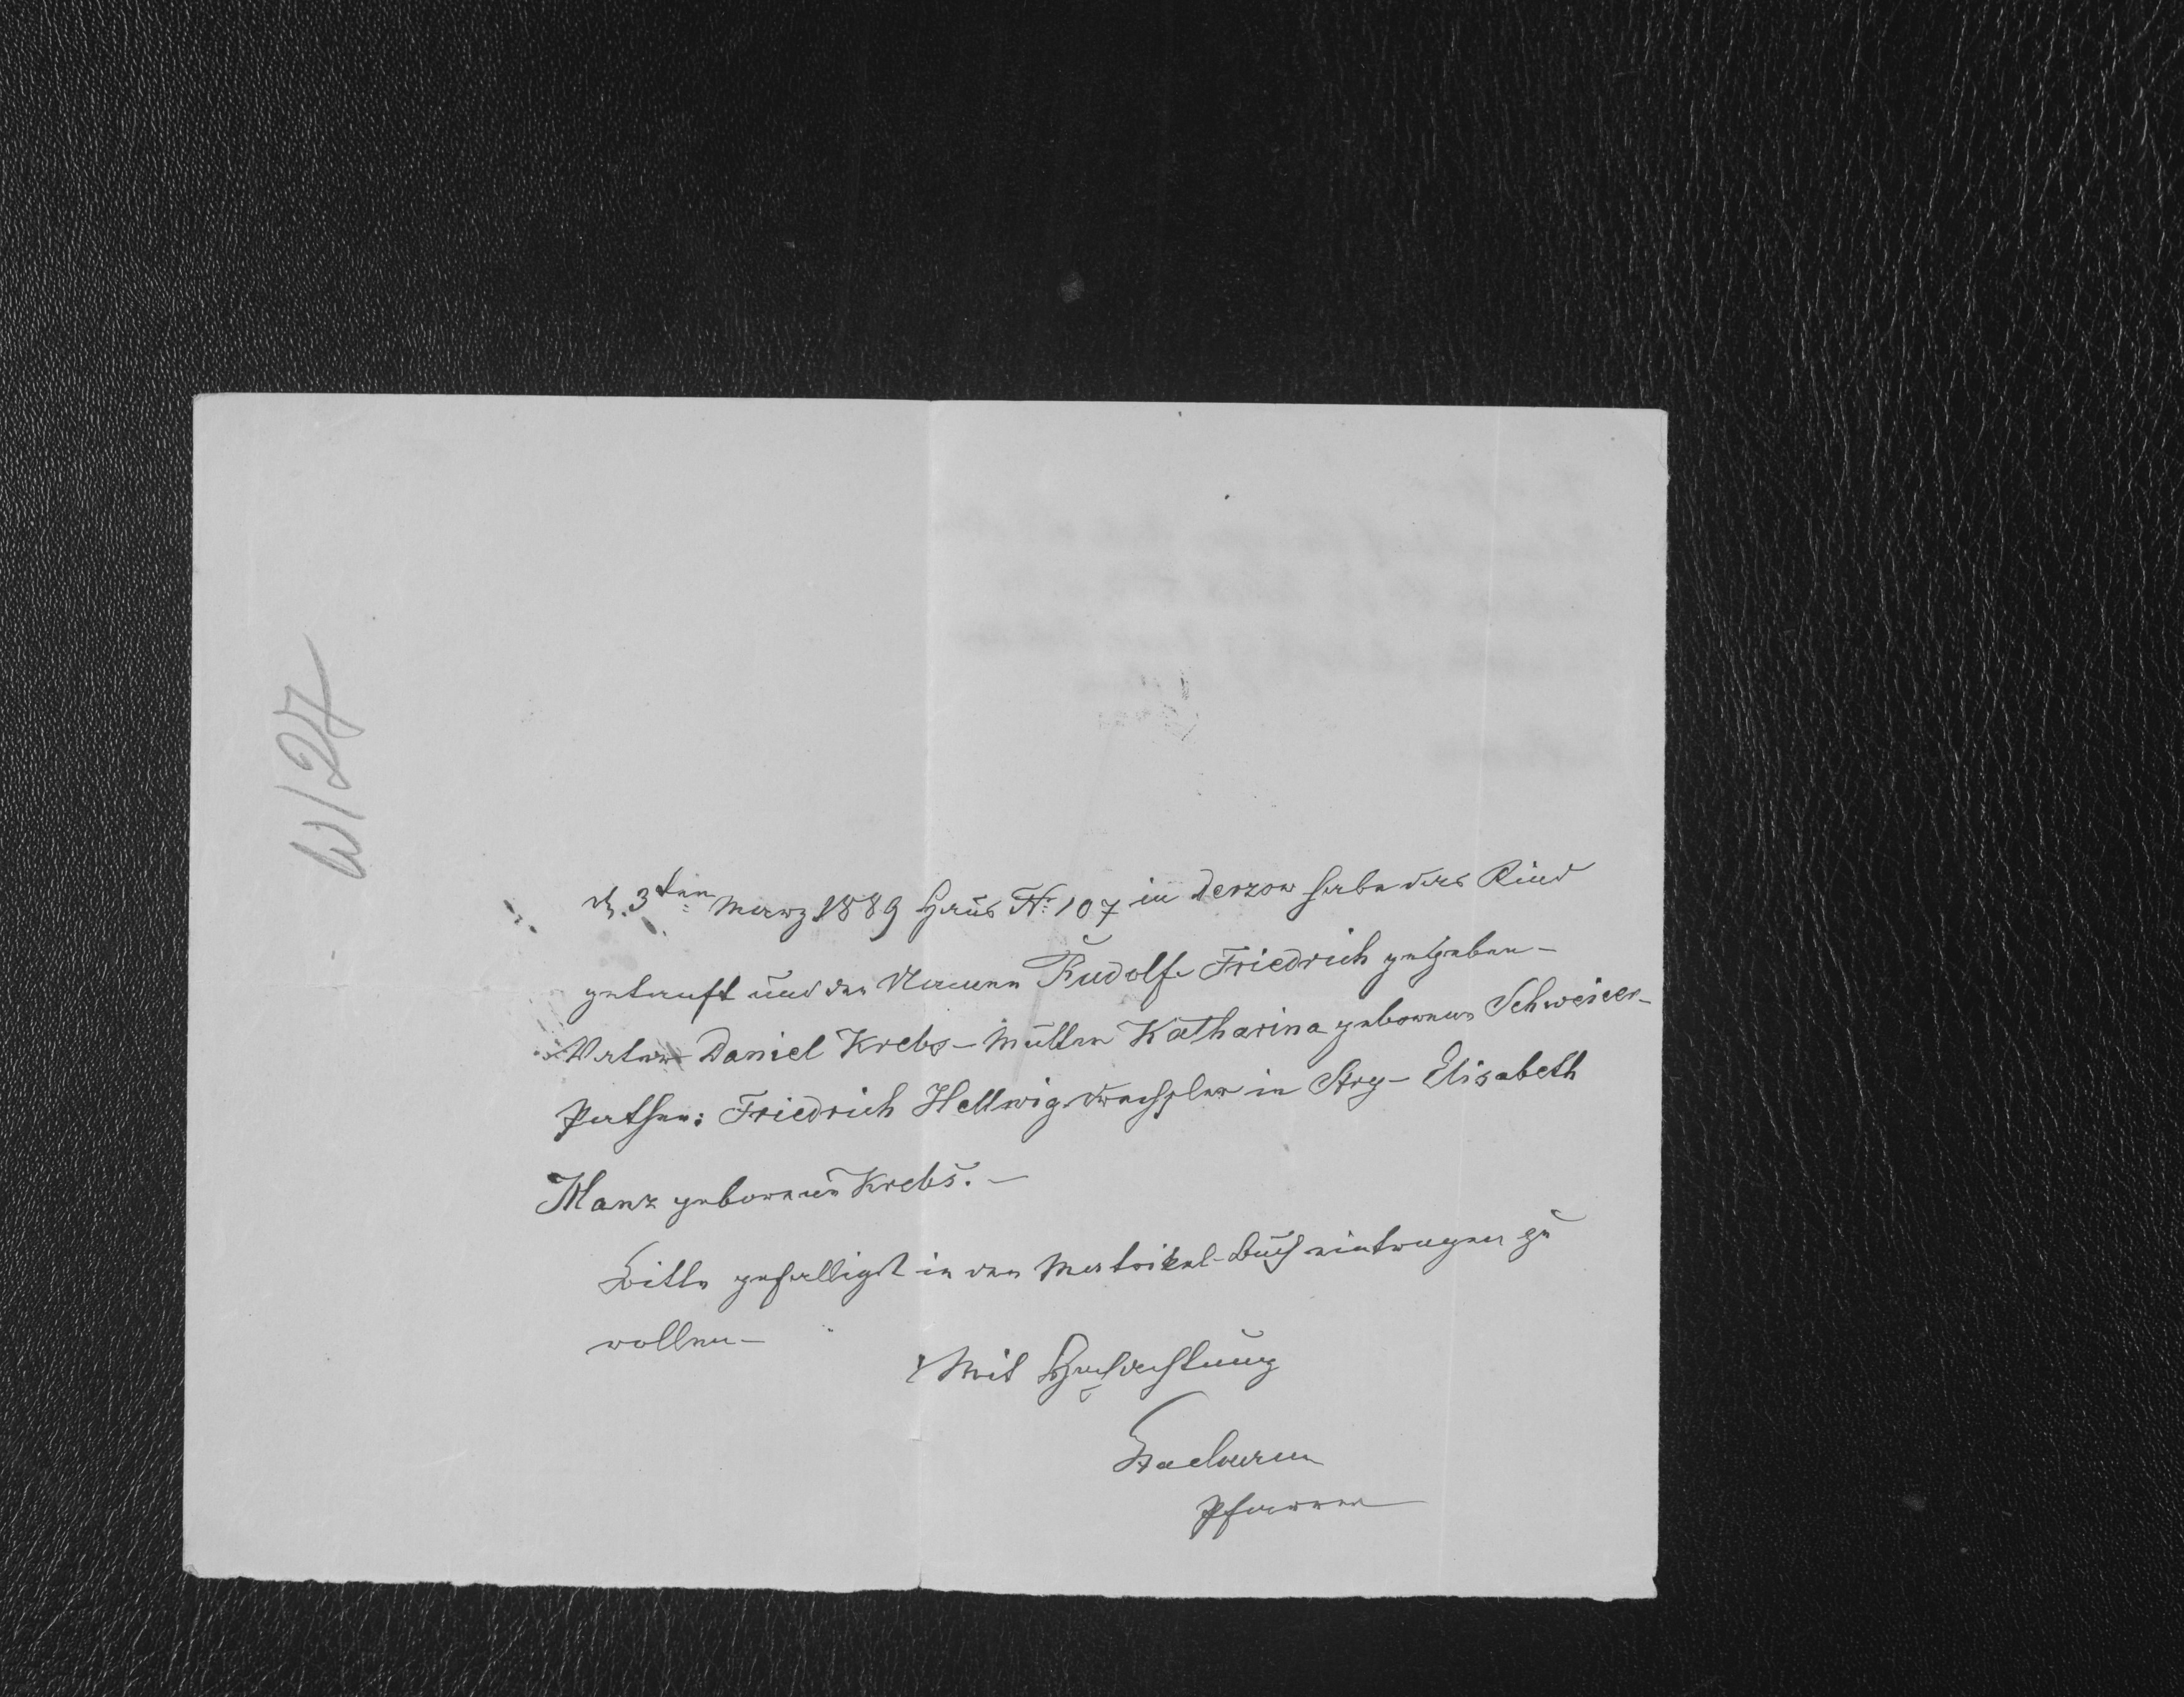 W/27
d. 3ten März 1889 Haus No 107 in Derzow habe das Kind
getauft und den Namen Rudolf Friedrich gegeben –
Vater Daniel Krebs – Mutter Katharina geborene
Pathen: Friedrich Hellwig Drechsler in Stry – Elisabeth
Manz geborene Krebs. –
Bitte gefälligst in das Matrikel-Buch eintragen zu
wollen –
Mit Hochachtung
Pfarrer